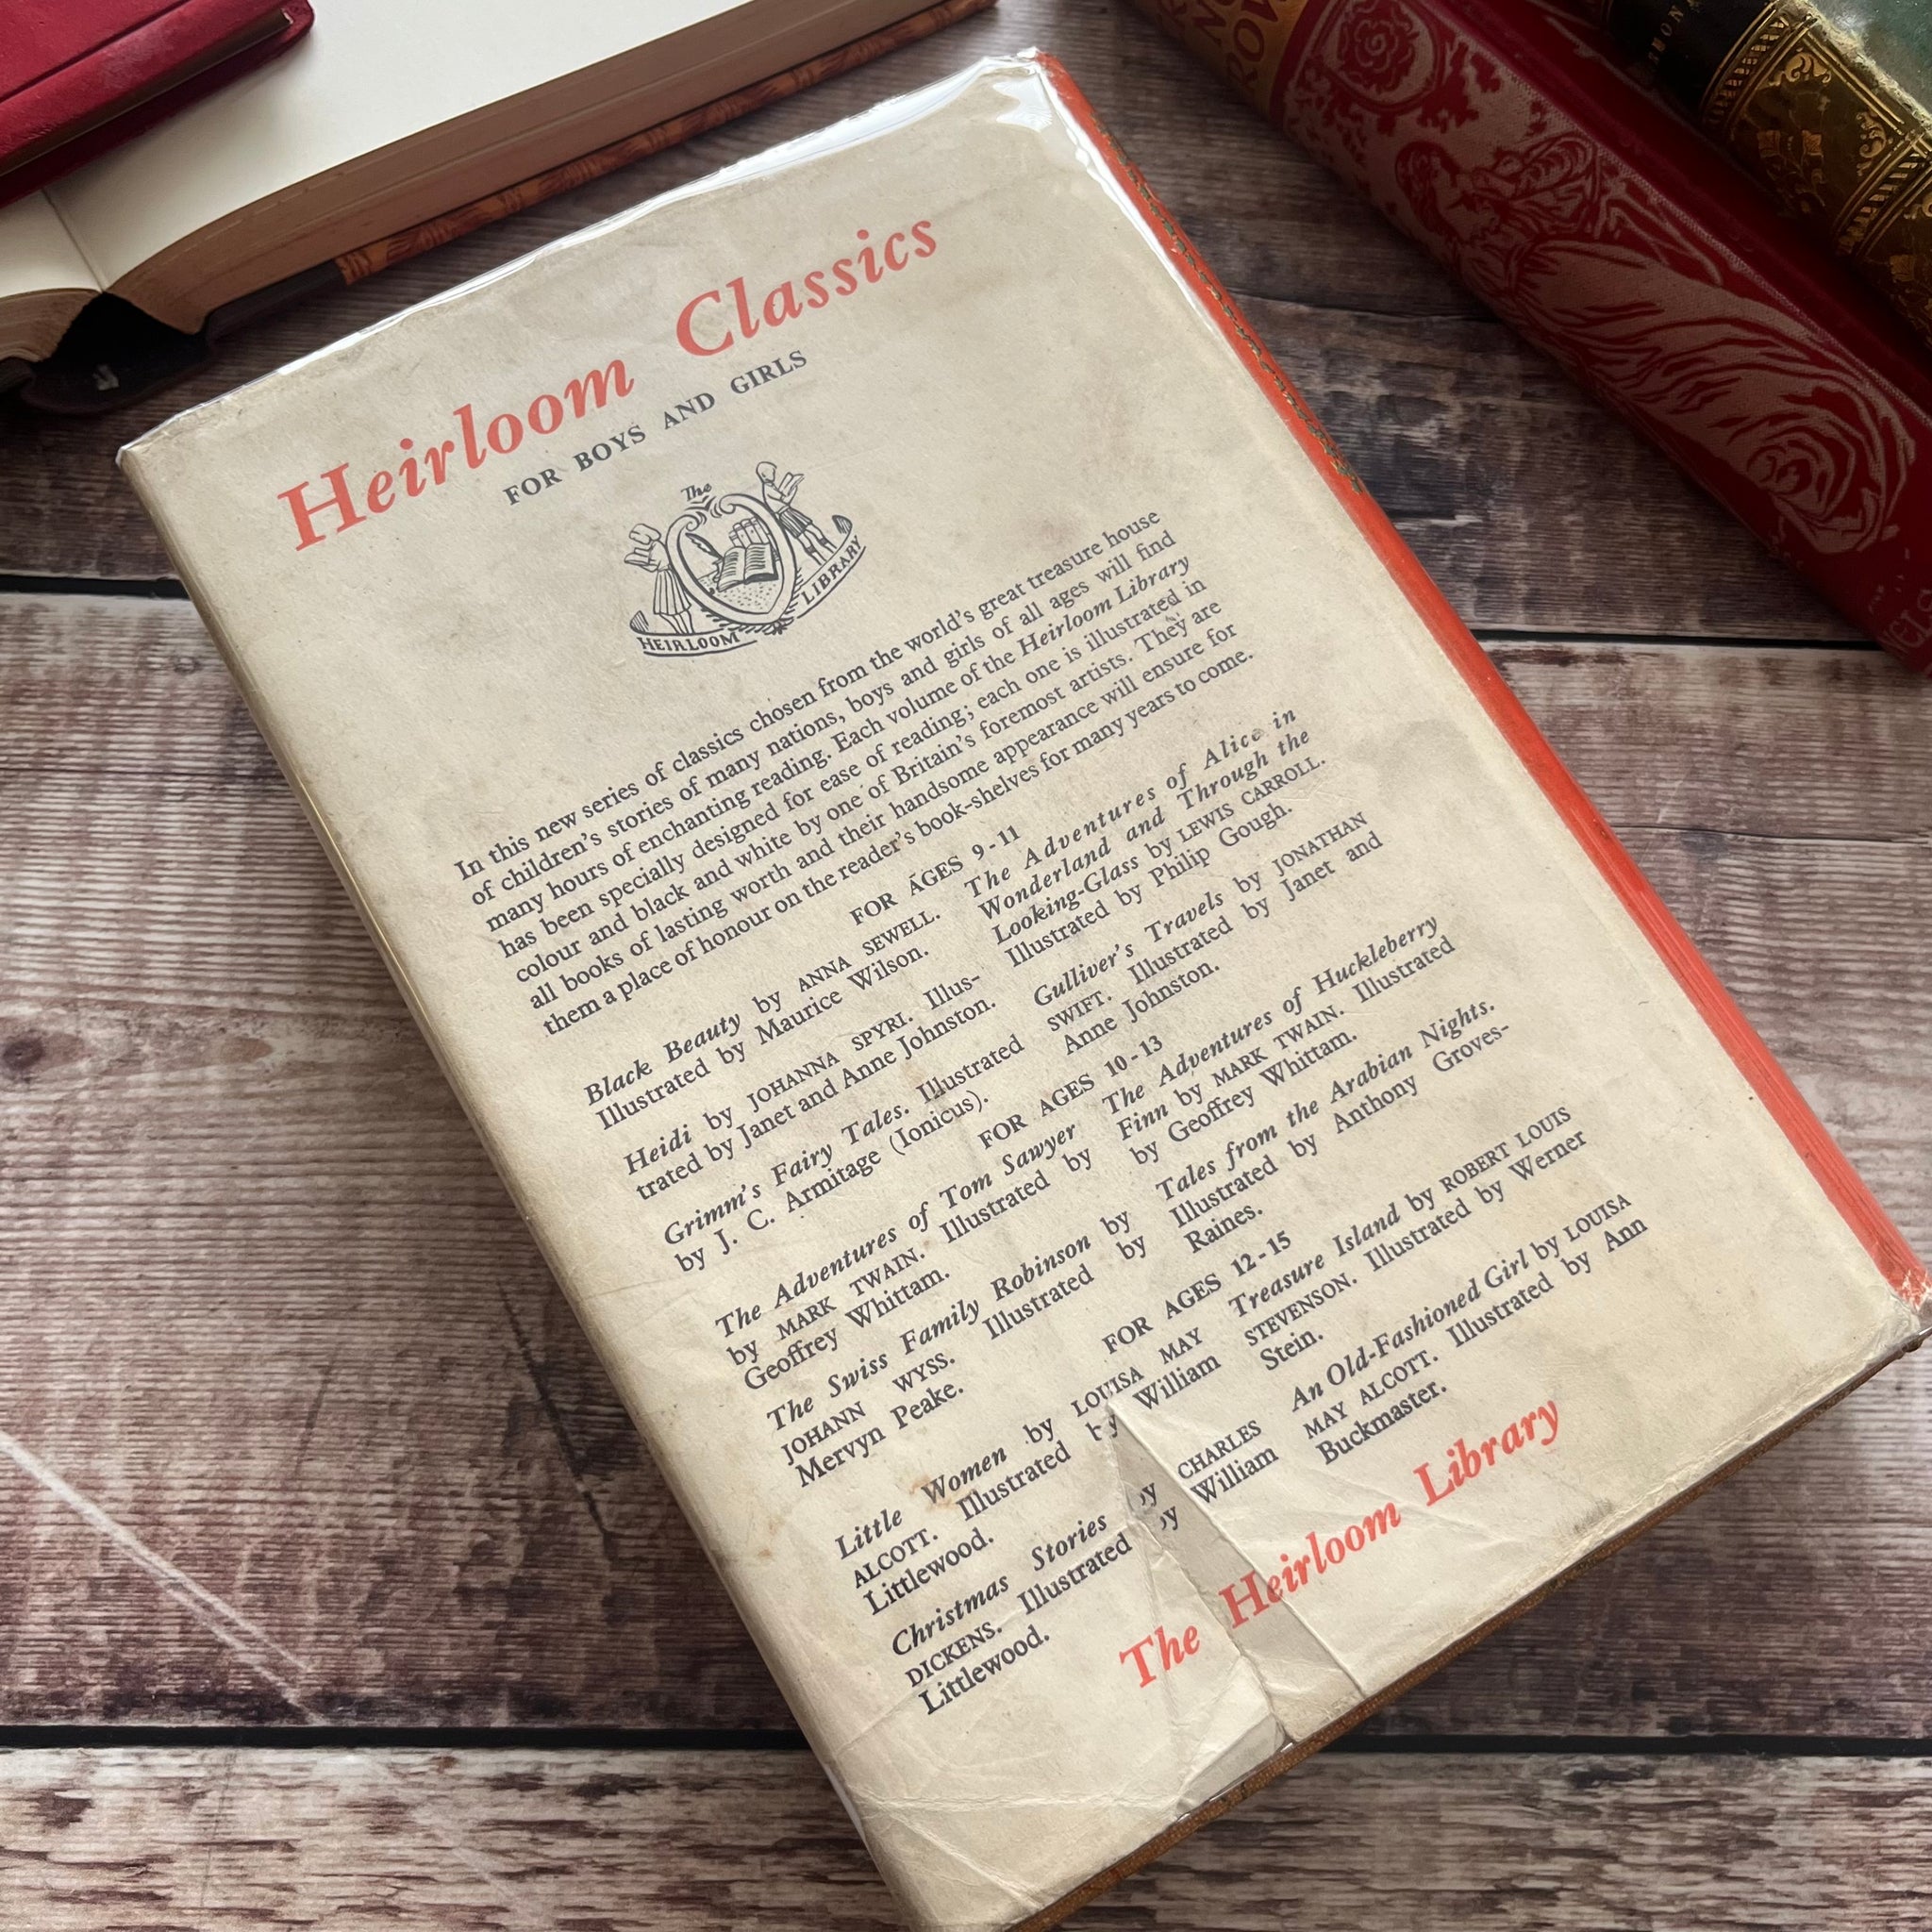 Heirloom Classics
FOR BOYS AND GIRLS
The
HEIRLOOM LIBRARY
In this new series of classics chosen from the world's great treasure house
of children's stories of many nations, boys and girls of all ages will find
many hours of enchanting reading. Each volume of the Heirloom Library
has been specially designed for ease of reading; each one is illustrated in
colour and black and white by one of Britain's foremost artists. They are
all books of lasting worth and their handsome appearance will ensure for
them a place of honour on the reader's book-shelves for many years to come.
FOR AGES 9-11
Black Beauty by ANNA SEWELL.
Illustrated by Maurice Wilson.
Heidi by JOHANNA SPYRI. Illus-
trated by Janet and Anne Johnston.
Grimm's Fairy Tales. Illustrated
by J. C. Armitage (Ionicus).
The Adventures of Alice in
Wonderland and Through the
Looking-Glass by LEWIS CARROLL.
Illustrated by Philip Gough.
Gulliver's Travels by JONATHAN
SWIFT. Illustrated by Janet and
Anne Johnston.
FOR AGES 10-13
The Adventures of Tom Sawyer
by MARK TWAIN. Illustrated by
Geoffrey Whittam.
The Swiss Family Robinson by
JOHANN WYSS. Illustrated by
Mervyn Peake.
The Adventures of Huckleberry
Finn by MARK TWAIN. Illustrated
by Geoffrey Whittam.
Tales from the Arabian Nights.
Illustrated by Anthony Groves-
Raines.
FOR AGES 12-15
Little Women by LOUISA MAY
ALCOTT. Illustrated by William
Littlewood.
Christmas Stories by CHARLES
DICKENS. Illustrated by William
Littlewood.
Treasure Island by ROBERT LOUIS
STEVENSON. Illustrated by Werner
Stein.
An Old-Fashioned Girl by LOUISA
MAY ALCOTT. Illustrated by Ann
Buckmaster.
The Heirloom Library